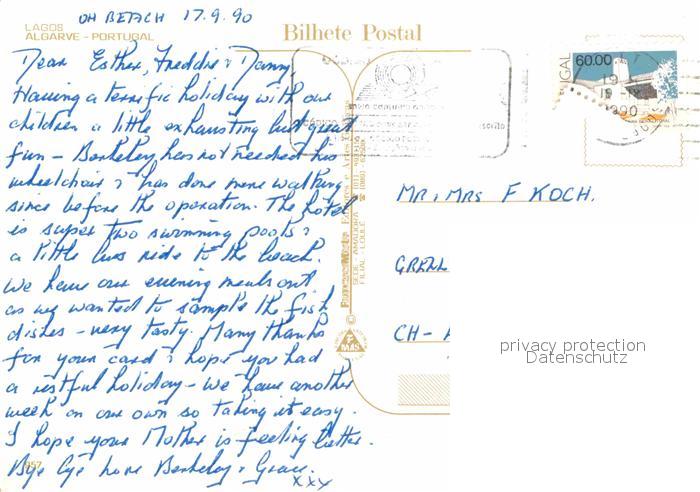 ON BEACH 17.9.90
LAGOS
ALGARVE - PORTUGAL
Bilhete Postal
Dear Esther, Freddie & Danny
Having a terrific holiday with our
children a little exhausting but great
fun - Berkeley has not needed his
wheelchair & has done more walking
since before the operation. The hotel
is super two swimming pools &
a little bus ride to the beach.
We have our evening meals out
as we wanted to sample the fish
dishes - very tasty. Many thanks
for your card & hope you had
a restful holiday - we have another
week on our own so taking it easy.
I hope your Mother is feeling better.
Bye bye love Berkeley & Grace.
xxx
857
60.00
19
1990
MR & MRS F KOCH.
CH-
privacy protection
Datenschutz